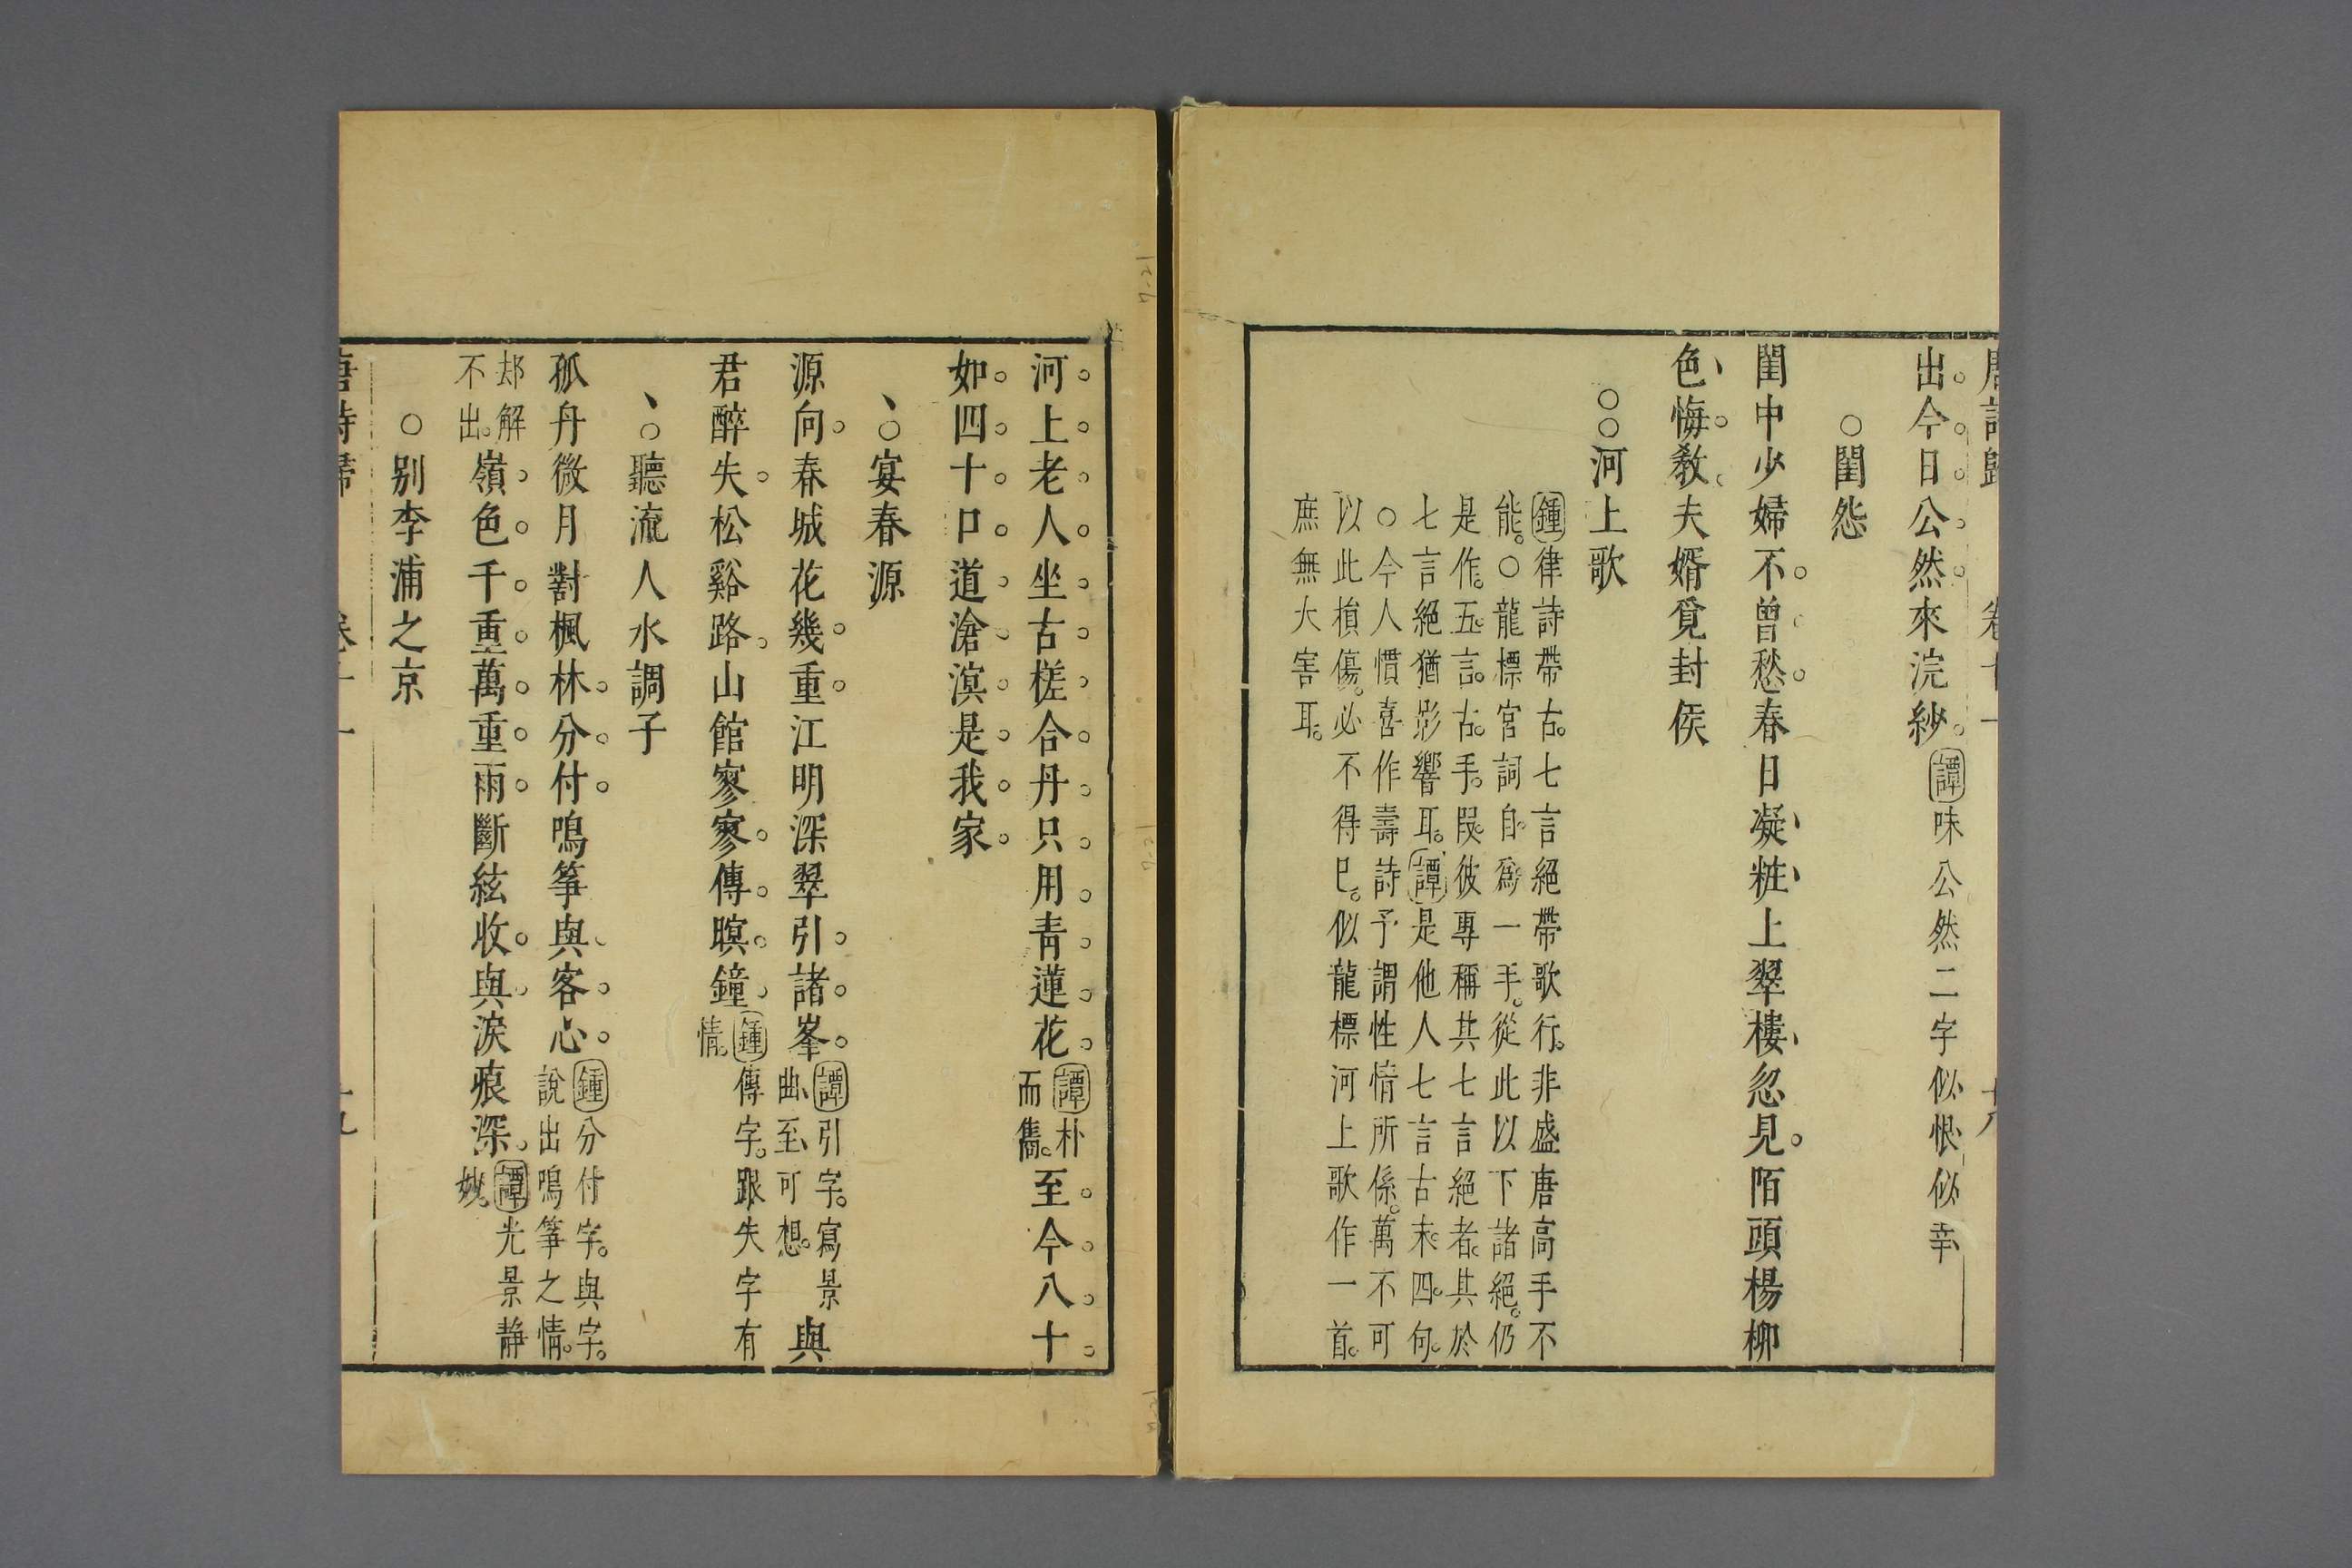 唐詩歸 卷十一 十八
出今日公然來浣紗譚味公然二字似恨似幸
○閨怨
閨中少婦不曾愁春日凝粧上翠樓忽見陌頭楊柳
色悔教夫婿覓封侯
○○河上歌
鍾律詩帶古七言絕帶歌行非盛唐高手不
能○龍標宮詞自為一手從此以下諸絕仍
是作五言古手段彼專稱其七言絕者其於
七言絕猶影響耳譚是他人七言古末四句
○今人慣喜作壽詩予謂性情所係萬不可
以此損傷必不得已似龍標河上歌作一首
庶無大害耳
河上老人坐古槎合丹只用青蓮花譚朴
而雋至今八十
如四十口道滄溟是我家
、○宴春源
源向春城花幾重江明深翠引諸峯譚引字寫景
曲至可想與
君醉失松谿路山館寥寥傳暝鐘鍾傳字跟失字有
情
、○聽流人水調子
孤舟微月對楓林分付鳴筝與客心鍾分付字與字
說出鳴筝之情
却解
不出嶺色千重萬重雨斷絃收與淚痕深譚光景静
妙
○别李浦之京
唐詩歸 卷十一 十九